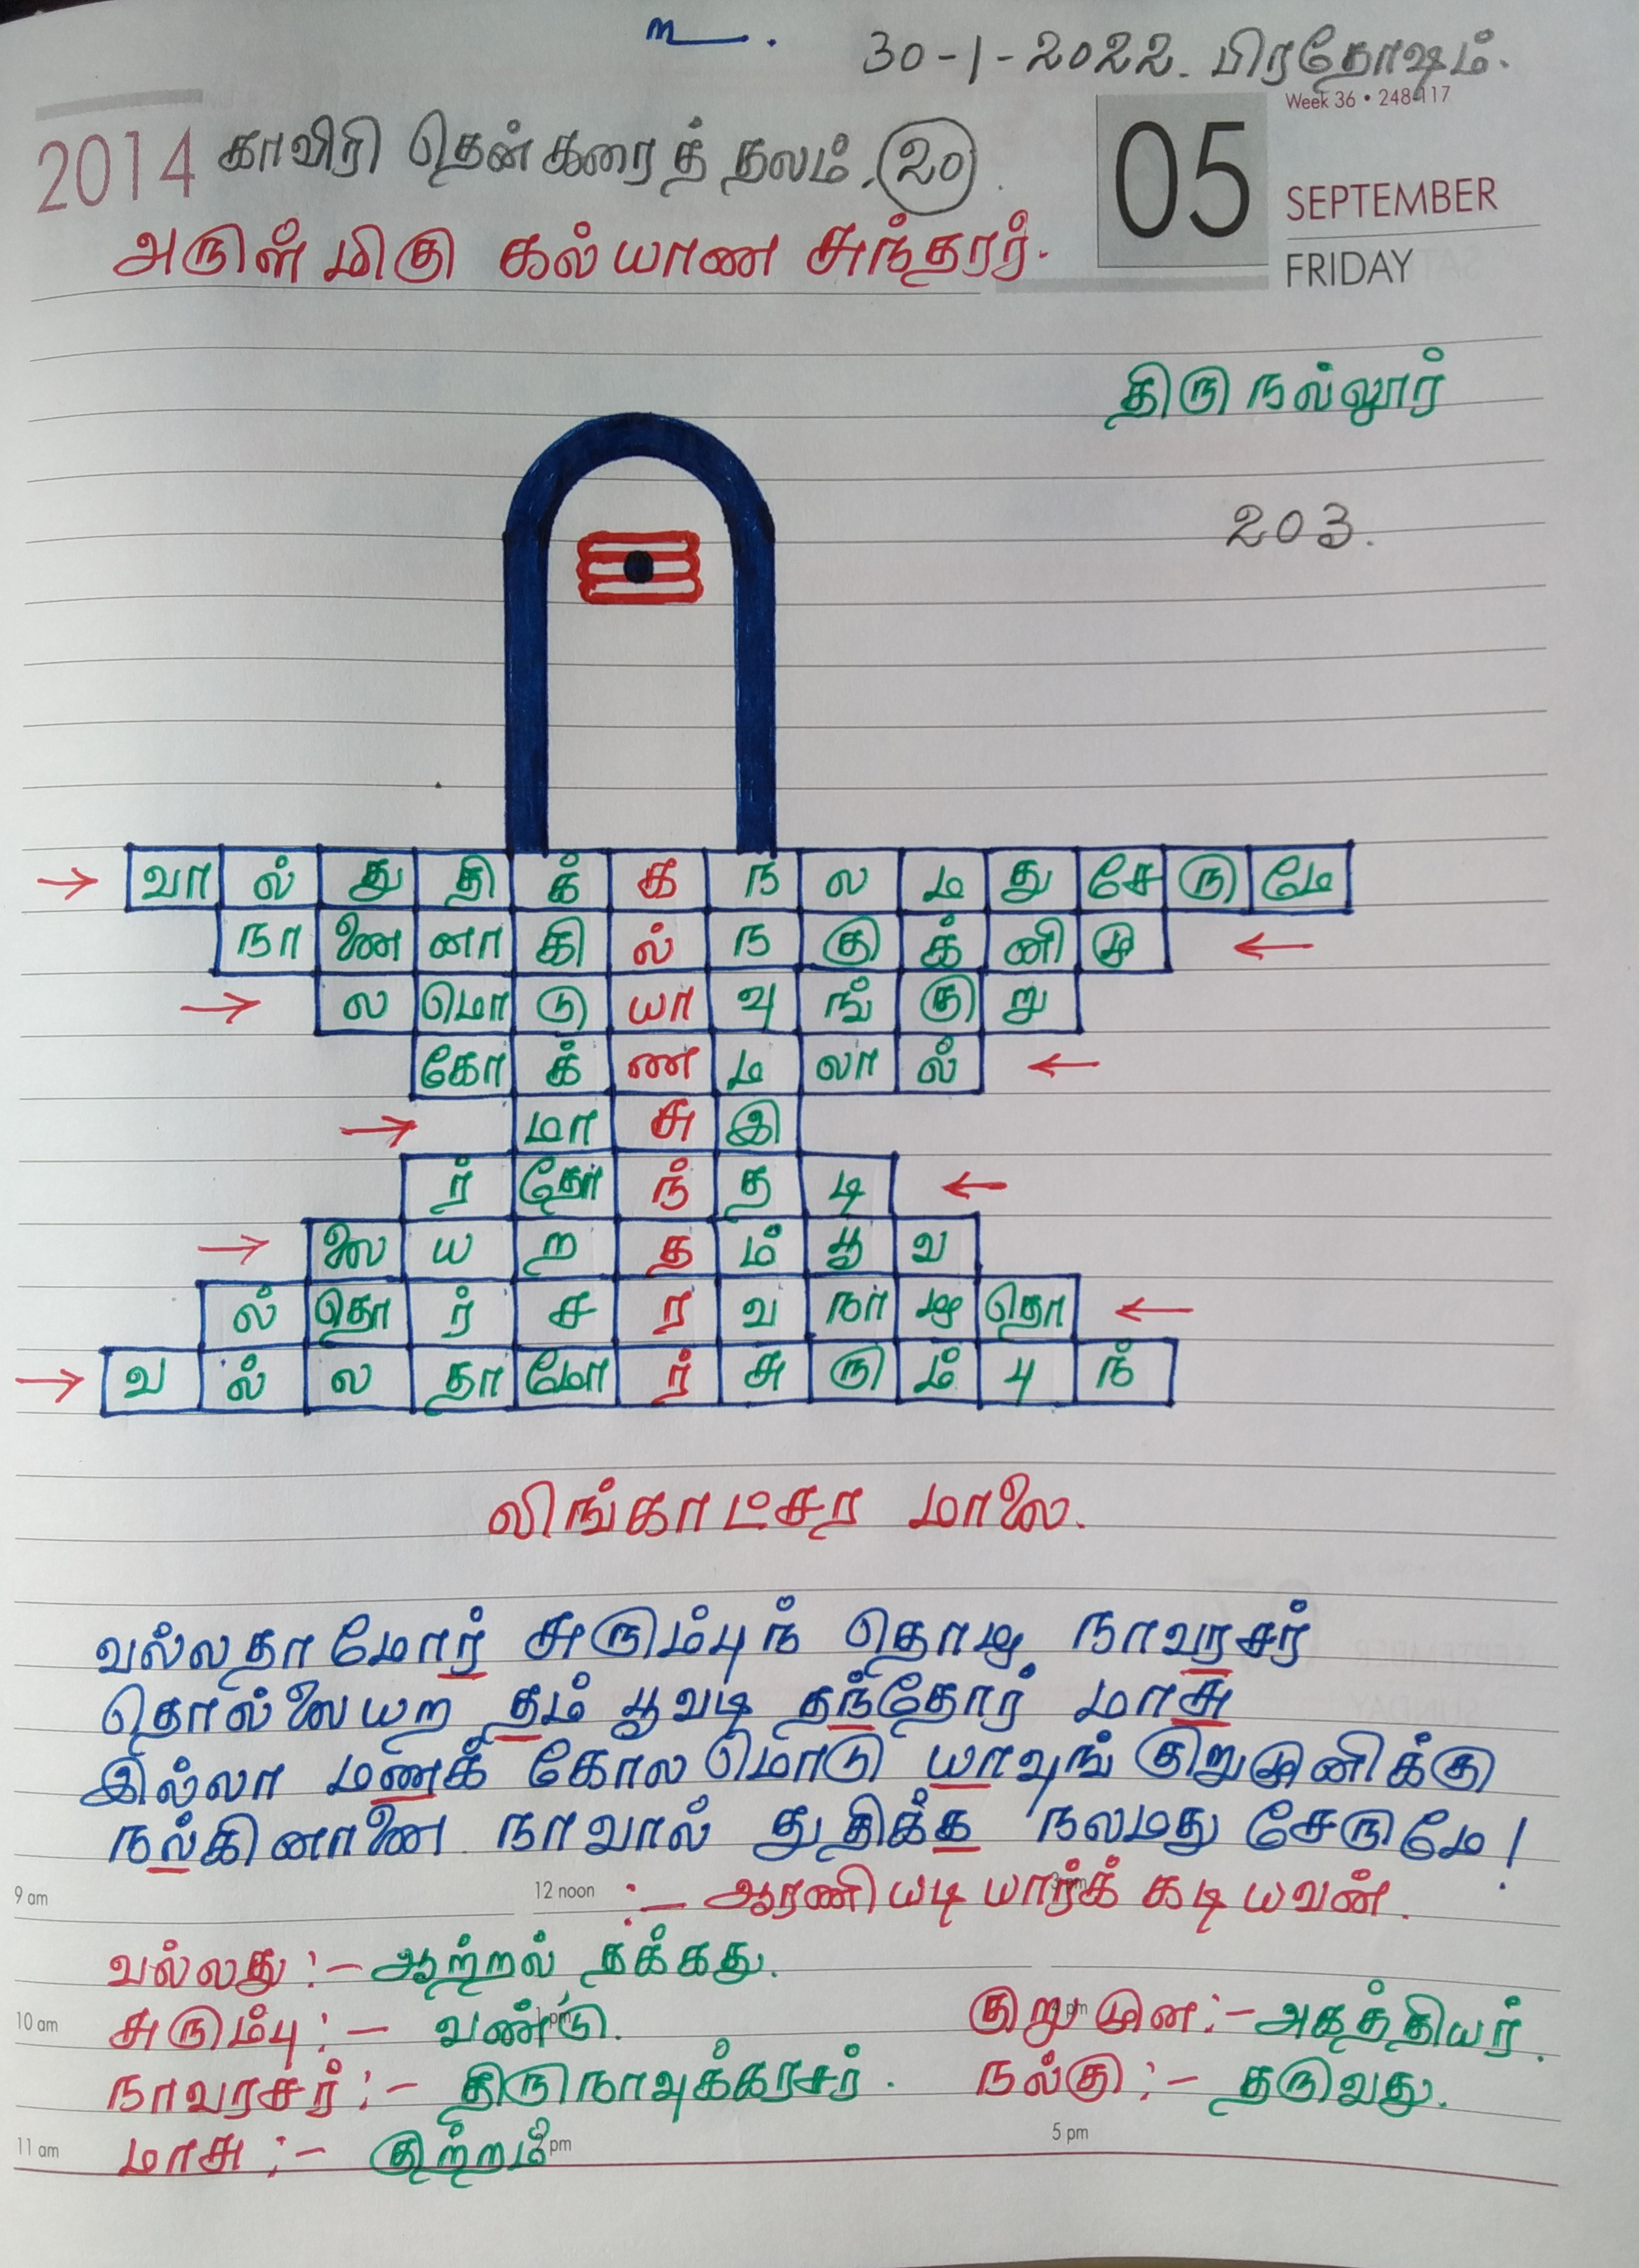 உ
30-1-2022. பிரதோஷம்.
Week 36 • 248-117
2014 காவிரி தென்கரைத் தலம். 20.
05
SEPTEMBER
FRIDAY
அருள்மிகு கல்யாண சுந்தரர்.
திருநல்லூர்
203.
→ வா ல் து தி க் க ந ல ம து சே ரு மே
நா ணை னா கி ல் ந கு க் னி மு ←
→ ல மொ டு யா வு ங் கு று
கோ க் ண ம லா ல் ←
→ மா சு இ
ர் தோ ந் த டி ←
→ லை ய ற த ம் பூ வ
ல் தொ ர் ச ர வ நா ழு தொ ←
→ வ ல் ல தா மோ ர் சு ரு ம் பு ந்
லிங்காட்சர மாலை.
வல்லதாமோர் சுரும்புந் தொழு நாவரசர்
தொல்லையற தம் பூவடி தந்தோர் மாசு
இல்லா மணக் கோலமொடு யாவுங் குறுமுனிக்கு
நல்கினாணை நாவால் துதிக்க நலமது சேருமே!
9 am 12 noon 3 pm
:- ஆரணியடியார்க் கடியவன்.
வல்லது :- ஆற்றல் தக்கது.
10 am 1 pm 4 pm
சுரும்பு :- வண்டு. குறுமுன :- அகத்தியர்.
நாவரசர் :- திருநாவுக்கரசர். நல்கு :- தருவது.
11 am 2 pm 5 pm
மாசு :- குற்றம்